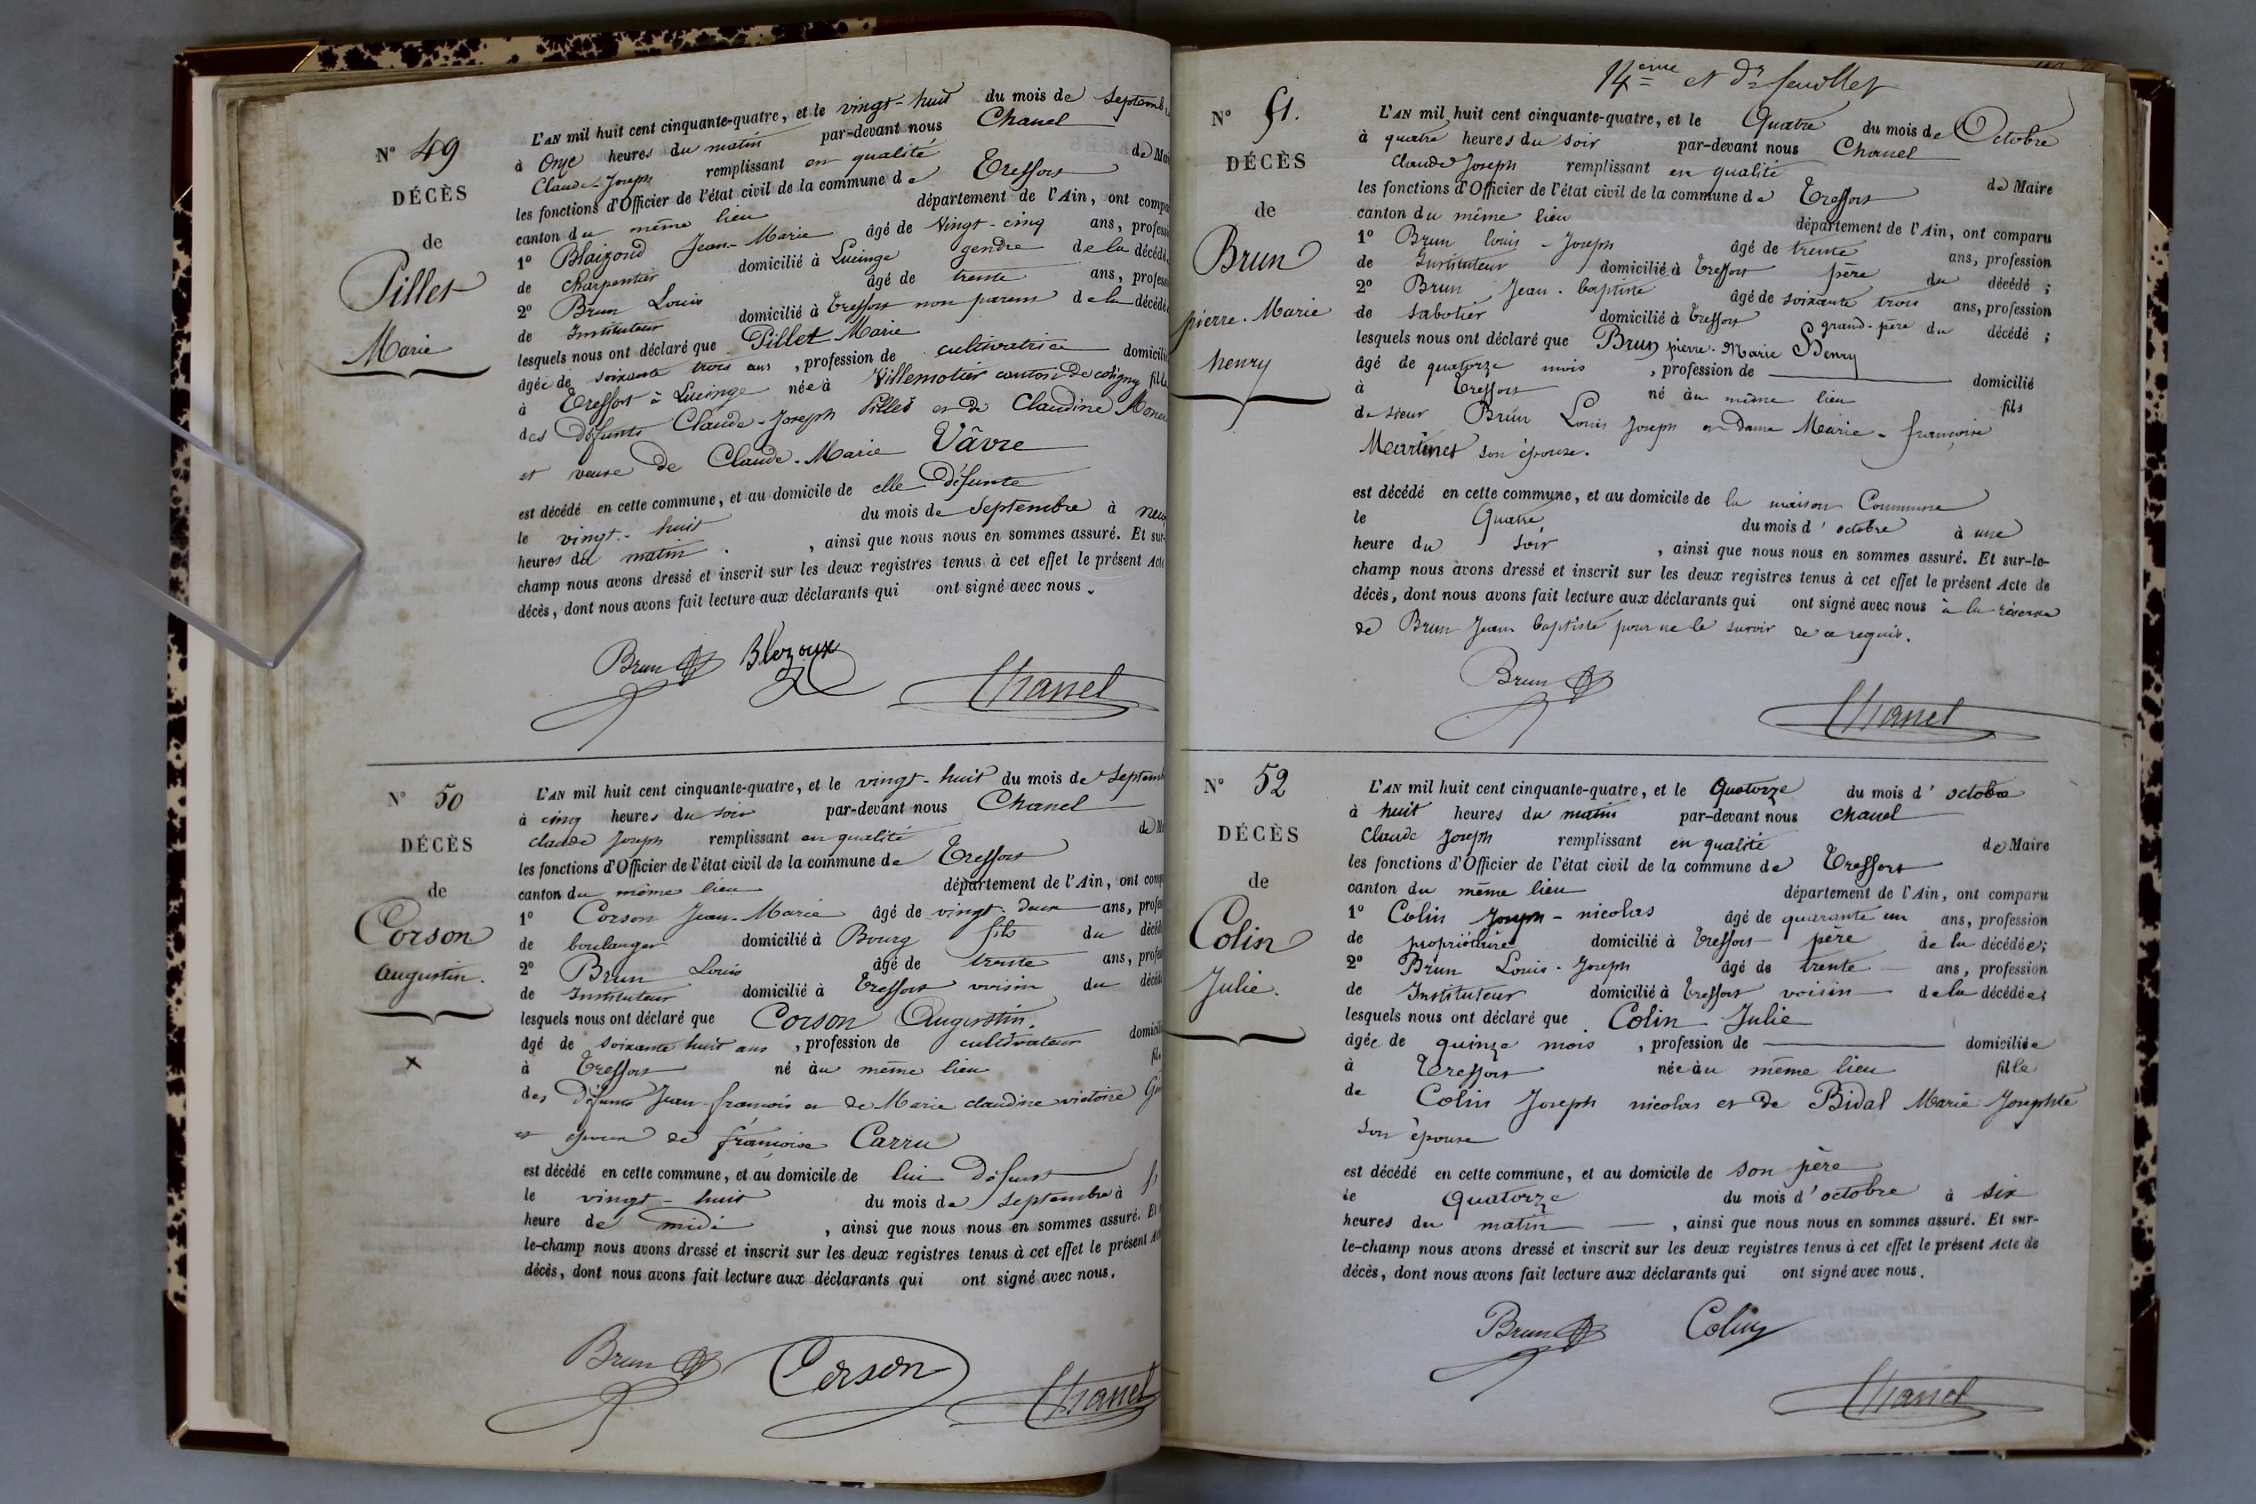 N° 49
DÉCÈS
de
Pillet
Marie
L'AN mil huit cent cinquante-quatre, et le vingt-huit du mois de Septemb
à Onze heures du matin par-devant nous Chanel
Claude-Joseph remplissant en qualité de Mai
les fonctions d'Officier de l'état civil de la commune de Treffort
canton du même lieu département de l'Ain, ont compa
1° Blaizond Jean-Marie âgé de Vingt-cinq ans, profess
de charpentier domicilié à Lucinge gendre de la décédé
2° Brun Louis âgé de trente ans, profess
de Instituteur domicilié à Treffort non parent de la décédé
lesquels nous ont déclaré que Pillet Marie
âgée de soixante trois ans , profession de cultivatrice domicili
à Treffort à Lucinge née à Villemotier canton de coligny fille
des défunts Claude-Joseph Pillet et de Claudine
et veuve de Claude-Marie Vâvre
est décédé en cette commune, et au domicile de elle Défunte
le vingt-huit du mois de Septembre à neuf
heures du matin , ainsi que nous nous en sommes assuré. Et sur-
champ nous avons dressé et inscrit sur les deux registres tenus à cet effet le présent Acte
décès, dont nous avons fait lecture aux déclarants qui ont signé avec nous.
Brun Blezoux
Chanel
N° 50
DÉCÈS
de
Corson
augustin.
x
L'AN mil huit cent cinquante-quatre, et le vingt-huit du mois de Septemb
à cinq heures du soir par-devant nous Chanel
claude Joseph remplissant en qualité de M
les fonctions d'Officier de l'état civil de la commune de Treffort
canton du même lieu département de l'Ain, ont comp
1° Corson Jean-Marie âgé de vingt-deux ans, profes
de boulanger domicilié à Bourg fils du décéd
2° Brun Louis âgé de trente ans, profes
de Instituteur domicilié à Treffort voisin du décéd
lesquels nous ont déclaré que Corson Augustin.
âgé de soixante huit ans , profession de cultivateur domicili
à Treffort né au même lieu fils
des défunts Jean-françois et de Marie claudine victoire
et époux de françoise Carru
est décédé en cette commune, et au domicile de lui Défunt
le vingt-huit du mois de Septembre à
heure de midi , ainsi que nous nous en sommes assuré. Et
le-champ nous avons dressé et inscrit sur les deux registres tenus à cet effet le présent Ac
décès, dont nous avons fait lecture aux déclarants qui ont signé avec nous.
Brun Corson Chanel
14eme et Dr feuillet
N° 51.
DÉCÈS
de
Brun
pierre-Marie
henry
L'AN mil huit cent cinquante-quatre, et le Quatre du mois de Octobre
à quatre heures du soir par-devant nous Chanel
Claude Joseph remplissant en qualité de Maire
les fonctions d'Officier de l'état civil de la commune de Treffort
canton du même lieu département de l'Ain, ont comparu
1° Brun louis-Joseph âgé de trente ans, profession
de Instituteur domicilié à Treffort père du décédé ;
2° Brun Jean-baptiste âgé de soixante trois ans, profession
de sabotier domicilié à Treffort grand-père du décédé ;
lesquels nous ont déclaré que Brun pierre-Marie Henry
âgé de quatorze mois , profession de domicilié
à Treffort né au même lieu fils
de sieur Brun Louis Joseph et Dame Marie-françoise
Martinet son épouse.
est décédé en cette commune, et au domicile de la maison Commune
le Quatre du mois d'octobre à une
heure du soir , ainsi que nous nous en sommes assuré. Et sur-le-
champ nous avons dressé et inscrit sur les deux registres tenus à cet effet le présent Acte de
décès, dont nous avons fait lecture aux déclarants qui ont signé avec nous à la réserve
de Brun Jean baptiste pour ne le savoir de ce requis.
Brun
Chanel
N° 52
DÉCÈS
de
Colin
Julie.
L'AN mil huit cent cinquante-quatre, et le Quatorze du mois d'octobre
à huit heures du matin par-devant nous Chanel
Claude Joseph remplissant en qualité de Maire
les fonctions d'Officier de l'état civil de la commune de Treffort
canton du même lieu département de l'Ain, ont comparu
1° Colin Joseph-nicolas âgé de quarante un ans, profession
de propriétaire domicilié à Treffort père de la décédée;
2° Brun Louis-Joseph âgé de trente ans, profession
de Instituteur domicilié à Treffort voisin de la décédée;
lesquels nous ont déclaré que Colin Julie
âgée de quinze mois , profession de domiciliée
à Treffort née au même lieu fille
de Colin Joseph nicolas et de Bidal Marie Josephte
son épouse
est décédé en cette commune, et au domicile de son père
le Quatorze du mois d'octobre à six
heures du matin , ainsi que nous nous en sommes assuré. Et sur-
le-champ nous avons dressé et inscrit sur les deux registres tenus à cet effet le présent Acte de
décès, dont nous avons fait lecture aux déclarants qui ont signé avec nous.
Brun Colin
Chanel